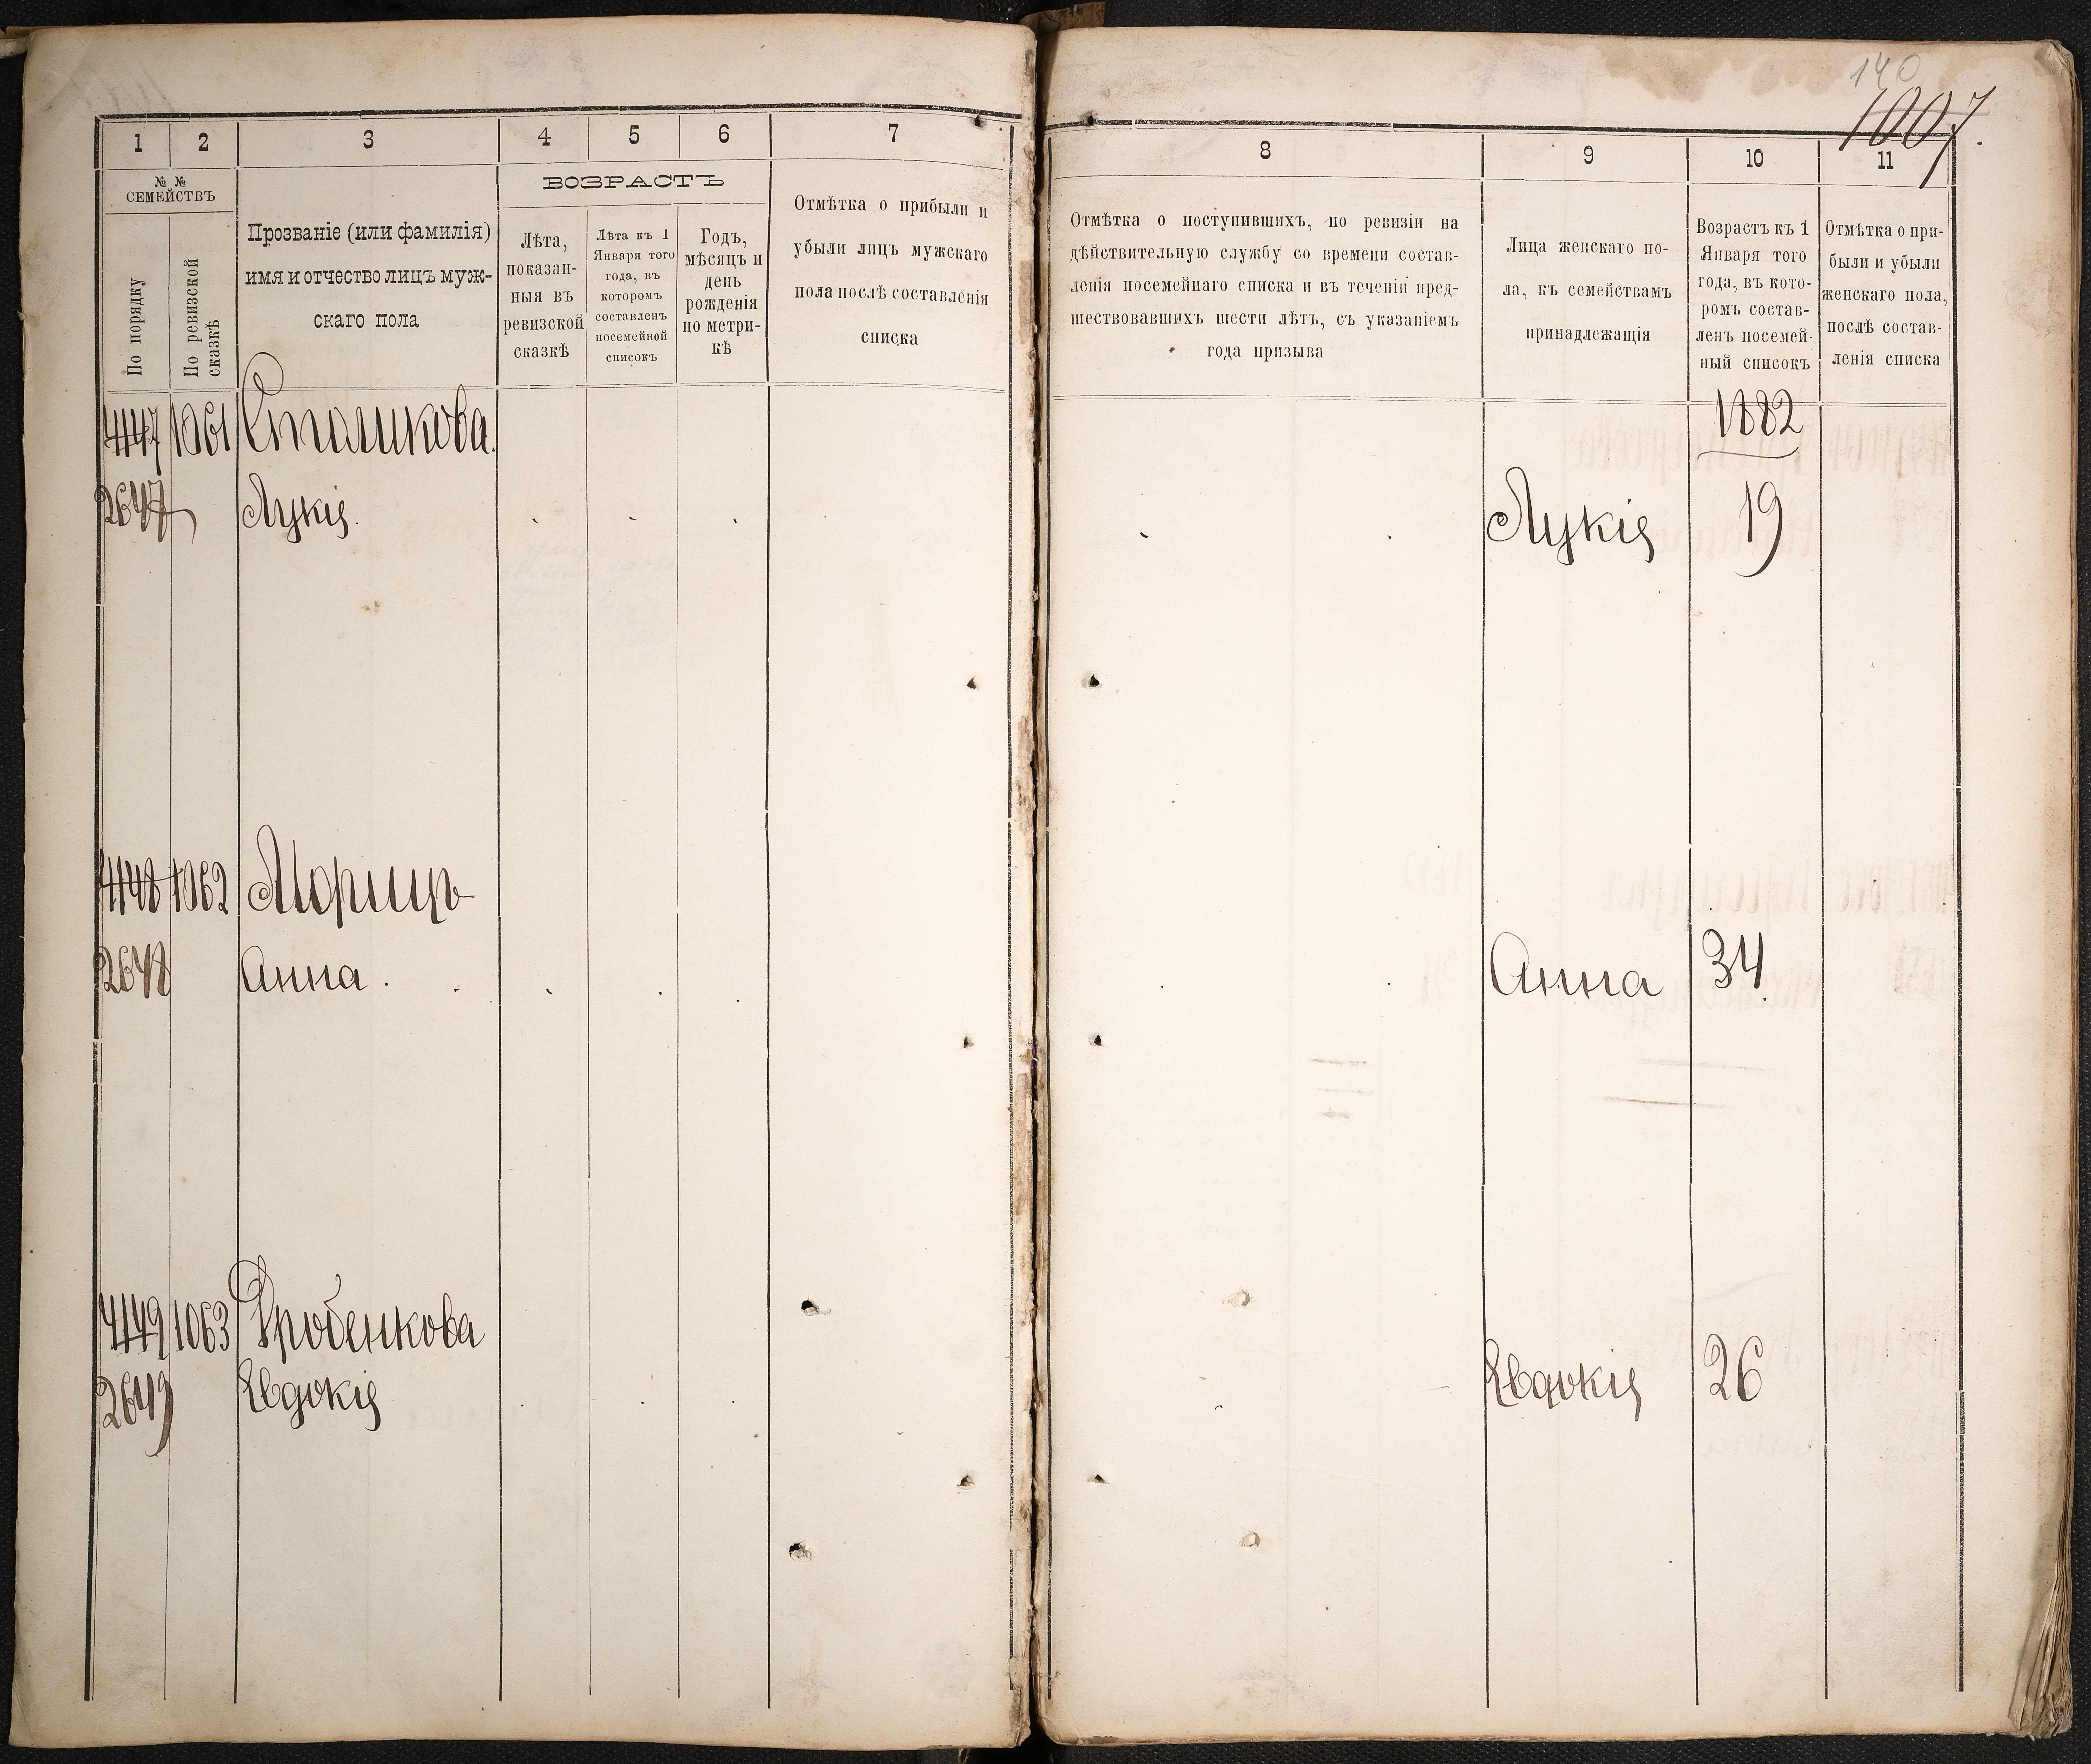 140
1007.
1 2 3 4 5 6 7
№ №
СЕМЕЙСТВЪ
По порядку
По ревизской
сказкѣ
Прозваніе (или фамилія)
имя и отчество лицъ муж-
скаго пола
ВОЗРАСТЪ
Лѣта,
показан-
ныя въ
ревизской
сказкѣ
Лѣта къ 1
Января того
года, въ
которомъ
составленъ
посемейной
списокъ
Годъ,
мѣсяцъ и
день
рожденія
по метри-
кѣ
Отмѣтка о прибыли и
убыли лицъ мужскаго
пола послѣ составленія
списка
4147 1061
2647 Лукія.
4148 1062 Морицъ
2648 Анна.
4149 1063 Дробенкова
2649 Евдокія
8 9 10 11
Отмѣтка о поступившихъ, по ревизіи на
дѣйствительную службу со времени состав-
ленія посемейнаго списка и въ теченіи пред-
шествовавшихъ шести лѣтъ, съ указаніемъ
года призыва
Лица женскаго по-
ла, къ семействамъ
принадлежащія
Возрастъ къ 1
Января того
года, въ кото-
ромъ состав-
ленъ посемей-
ный списокъ
Отмѣтка о при-
были и убыли
женскаго пола,
послѣ состав-
ленія списка
1882
Лукія 19
Анна 34.
Евдокія 26